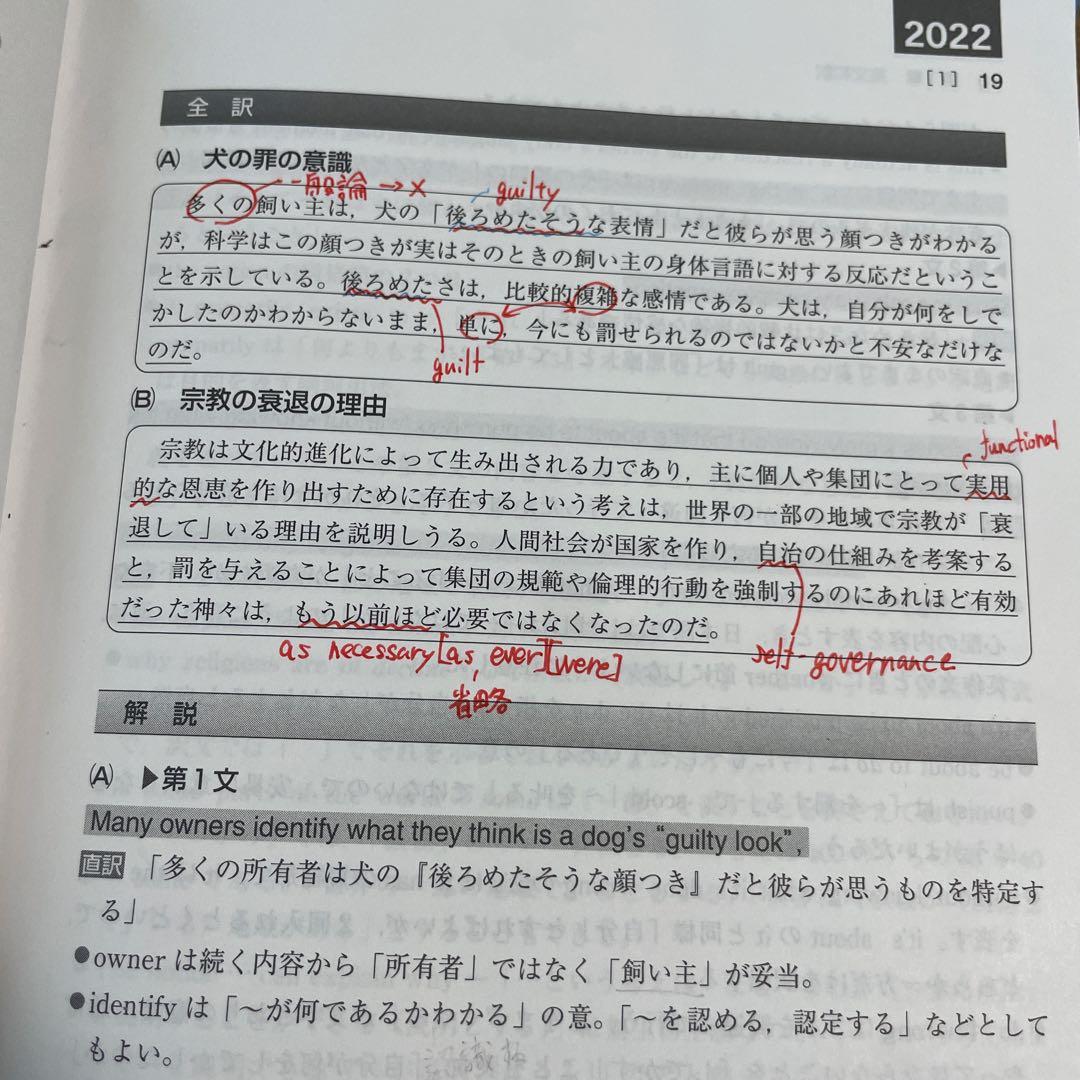 2022
[1] 19
全 訳
(A) 犬の罪の意識
一般論 → ×
guilty
多くの飼い主は，犬の「後ろめたそうな表情」だと彼らが思う顔つきがわかる
が，科学はこの顔つきが実はそのときの飼い主の身体言語に対する反応だというこ
とを示している。後ろめたさは，比較的複雑な感情である。犬は，自分が何をしで
かしたのかわからないまま，単に，今にも罰せられるのではないかと不安なだけな
のだ。
guilt
(B) 宗教の衰退の理由
functional
宗教は文化的進化によって生み出される力であり，主に個人や集団にとって実用
的な恩恵を作り出すために存在するという考えは，世界の一部の地域で宗教が「衰
退して」いる理由を説明しうる。人間社会が国家を作り，自治の仕組みを考案する
と，罰を与えることによって集団の規範や倫理的行動を強制するのにあれほど有効
だった神々は，もう以前ほど必要ではなくなったのだ。
as necessary [as ever] [were]
self-governance
省略
解 説
(A) ▶第1文
Many owners identify what they think is a dog's “guilty look”,
直訳 「多くの所有者は犬の『後ろめたそうな顔つき』だと彼らが思うものを特定す
る」
●owner は続く内容から「所有者」ではなく「飼い主」が妥当。
●identify は「～が何であるかわかる」の意。「～を認める，認定する」などとして
もよい。